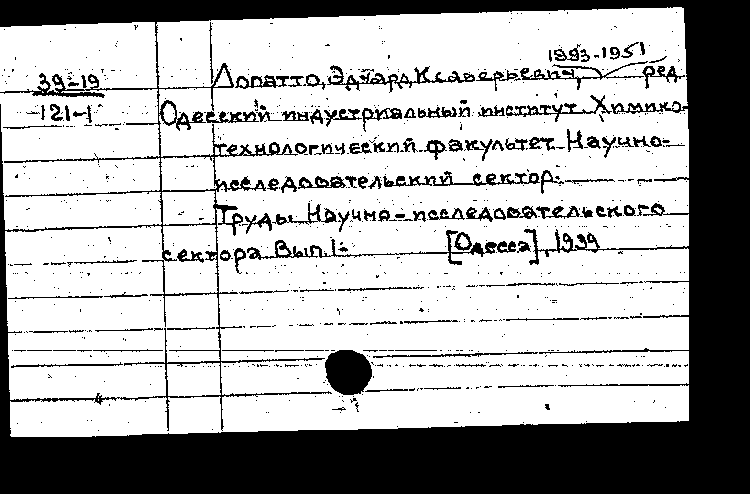 1893-1951
39-19 Лопатто, Эдуард Ксаверьевич, ред.
121-1 Одесский индустриальный институт. Химико-
технологический факультет. Научно-
исследовательский сектор.
Труды Научно-исследовательского
сектора. Вып. 1- [Одесса], 1939